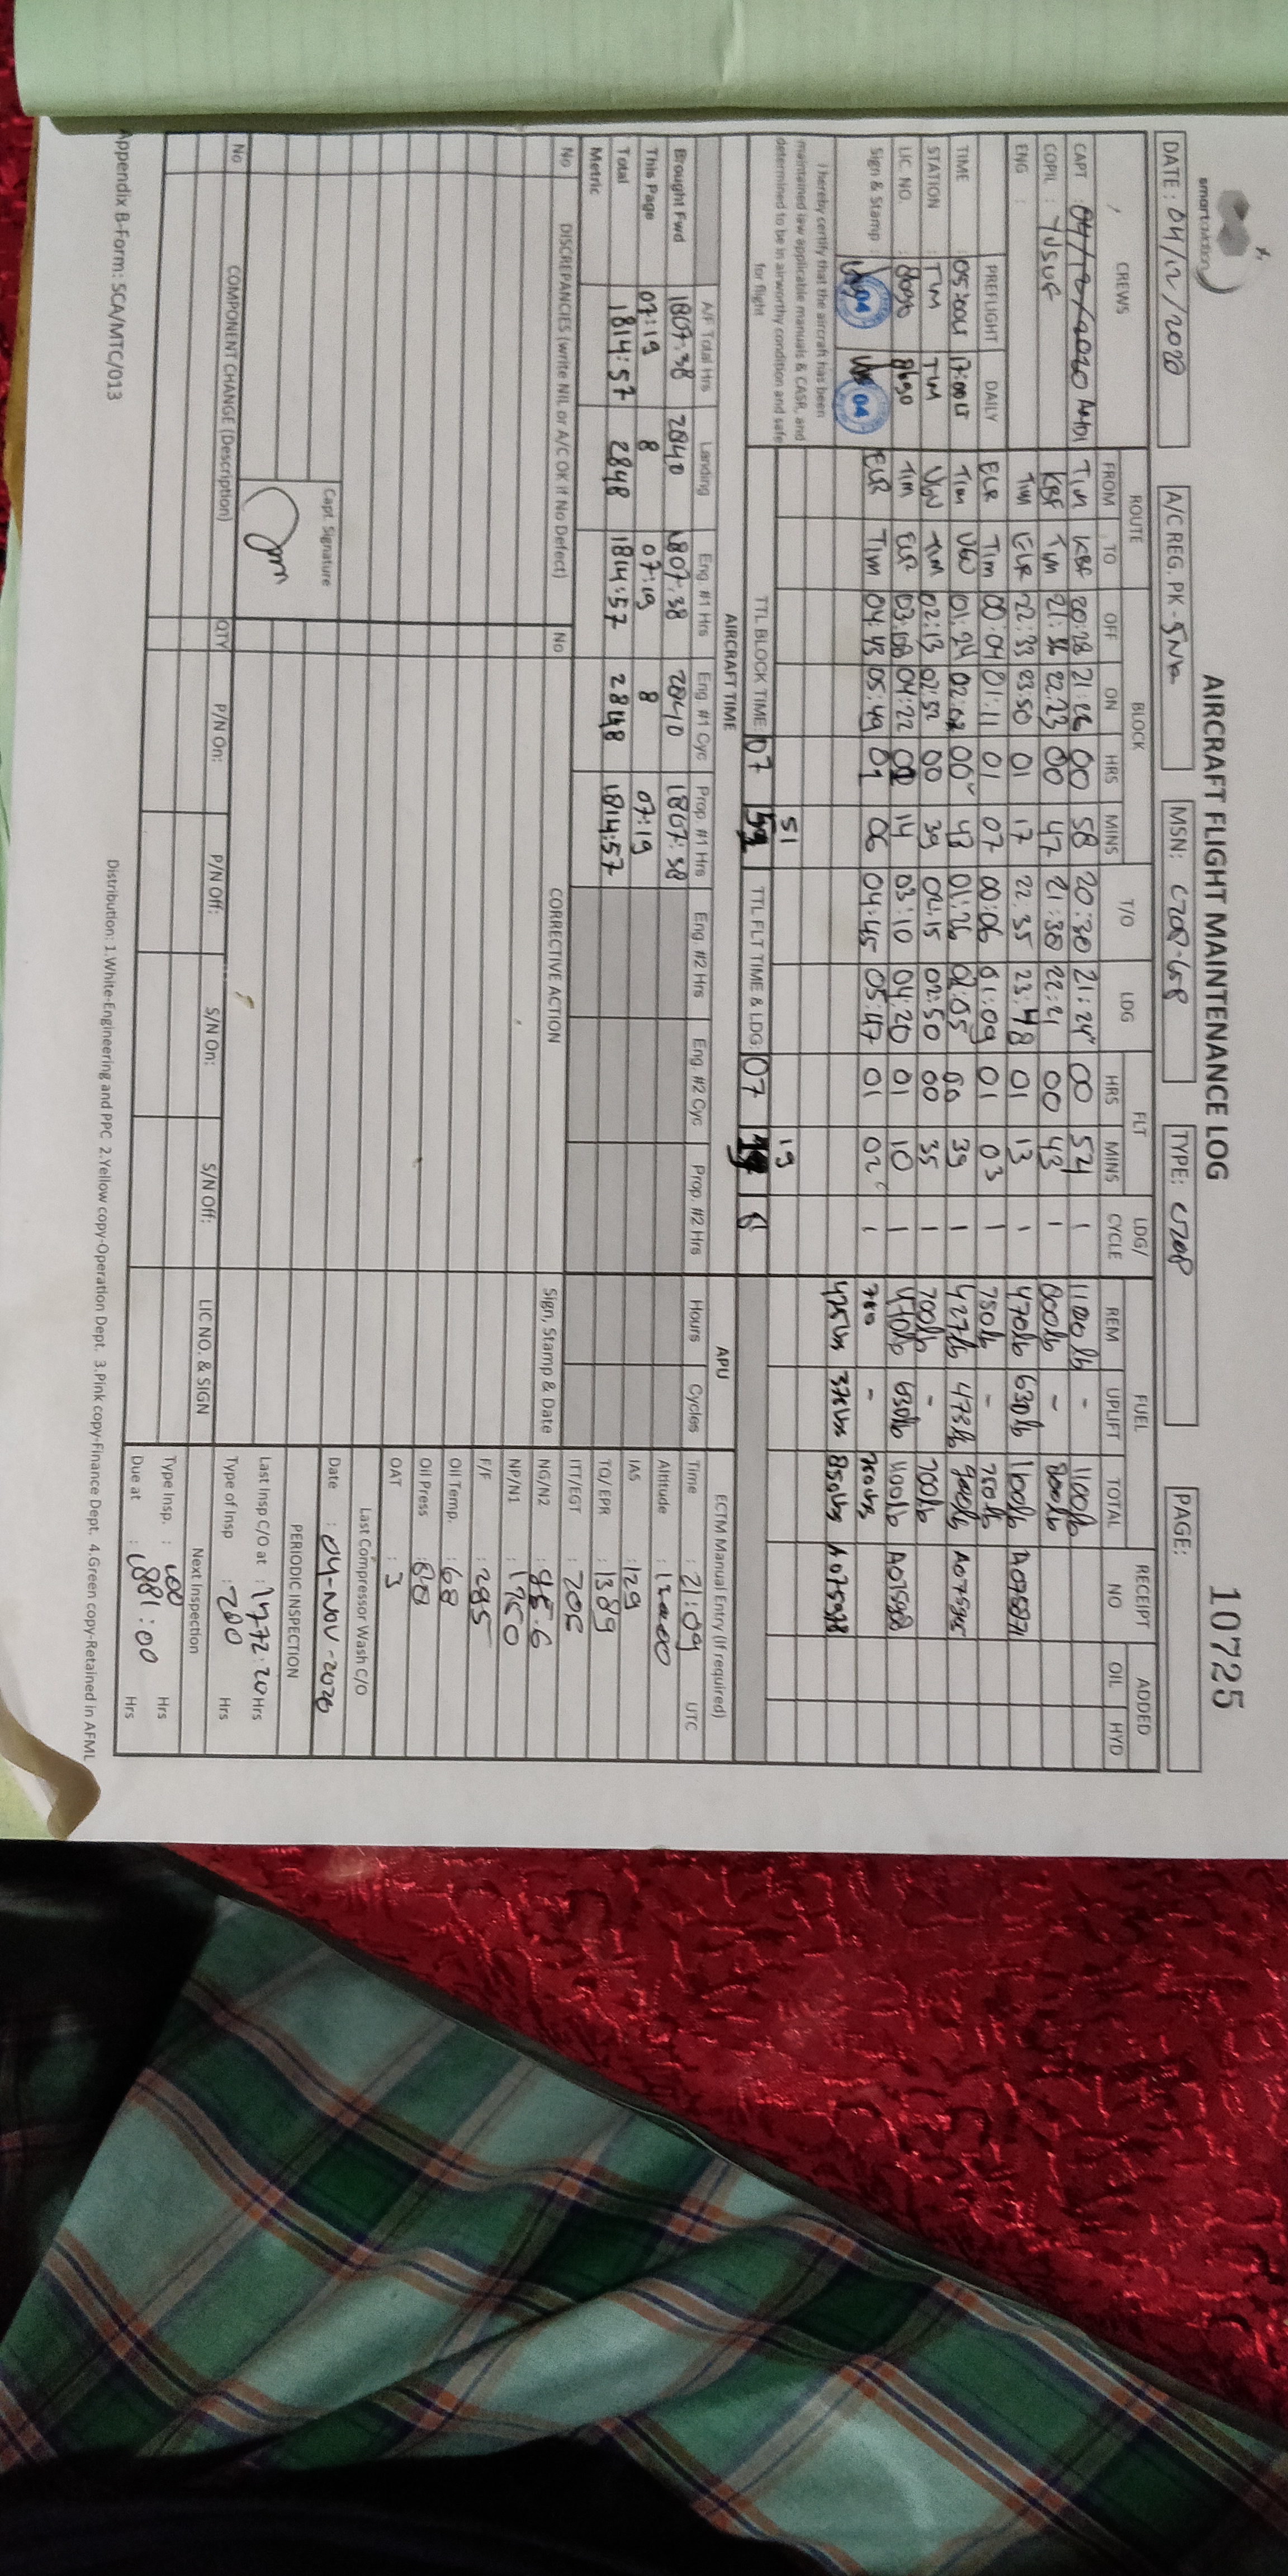 smart aviation
AIRCRAFT FLIGHT MAINTENANCE LOG
10725
DATE : 04/12/2020 A/C REG. PK - SNA MSN: TYPE: C208 PAGE:
CREWS ROUTE BLOCK T/O LDG FLT LDG/ CYCLE FUEL RECEIPT NO ADDED
FROM TO OFF ON HRS MINS HRS MINS REM UPLIFT TOTAL OIL HYD
CAPT TIM KBF 20:28 21:26 00 58 20:30 21:24 00 54 1 1100 lb - 1100lb
COPIL : YUSUF KBF TIM 21:36 22:23 00 47 21:38 22:21 00 43 1 800lb - 800lb
ENG : TIM ELR 22:33 23:50 01 17 22:35 23:48 01 13 1 470lb 630lb 1100lb
PREFLIGHT DAILY ELR TIM 00:04 01:11 01 07 00:06 01:09 01 03 1 750lb - 750lb
TIME : 05:00LT 17:00LT TIM 01:24 00 01:26 02:05 00 39 1 427lb 473lb 900lb
STATION : TIM TIM TIM 02:13 02:52 00 39 02:15 02:50 00 35 1 700lb - 700lb
LIC NO. : TIM ELR 03:08 04:22 14 03:10 04:20 01 10 1 470lb 630lb 1100lb
Sign & Stamp : 04 04 ELR TIM 04:43 05:49 01 06 04:45 05:47 01 02 1 -
425lbs 850lbs
I hereby certify that the aircraft has been
maintained iaw applicable manuals & CASR, and
determined to be in airworthy condition and safe
for flight
51 19
TTL BLOCK TIME 07 TTL FLT TIME & LDG: 07 8
AIRCRAFT TIME APU ECTM Manual Entry (If required)
A/F Total Hrs Landing Eng. #1 Hrs Eng. #1 Cyc Prop. #1 Hrs Eng. #2 Hrs Eng. #2 Cyc Prop. #2 Hrs Hours Cycles Time : 21:09 UTC
Brought Fwd 1807:38 2840 1807:38 2840 1807:38 Altitude :
This Page 07:19 8 07:19 8 07:19 IAS : 129
Total 1814:57 2848 1814:57 2848 1814:57 TO/EPR : 1389
Metric ITT/EGT : 705
No DISCREPANCIES (write NIL or A/C OK if No Defect) No CORRECTIVE ACTION Sign, Stamp & Date NG/N2 :
NP/N1 : 1750
F/F : 295
Oil Temp. : 68
Oil Press : 88
OAT : 3
Last Compressor Wash C/O
Capt. Signature
Date : 04-NOV-2020
PERIODIC INSPECTION
Last Insp C/O at : 1772:20 Hrs
No COMPONENT CHANGE (Description) QTY P/N On: P/N Off: S/N On: S/N Off: LIC NO. & SIGN Type of Insp : 200 Hrs
Next Inspection
Type Insp. : Hrs
Due at : 1881:00 Hrs
Appendix B-Form: SCA/MTC/013
Distribution: 1.White-Engineering and PPC 2.Yellow copy-Operation Dept. 3.Pink copy-Finance Dept. 4.Green copy-Retained in AFML